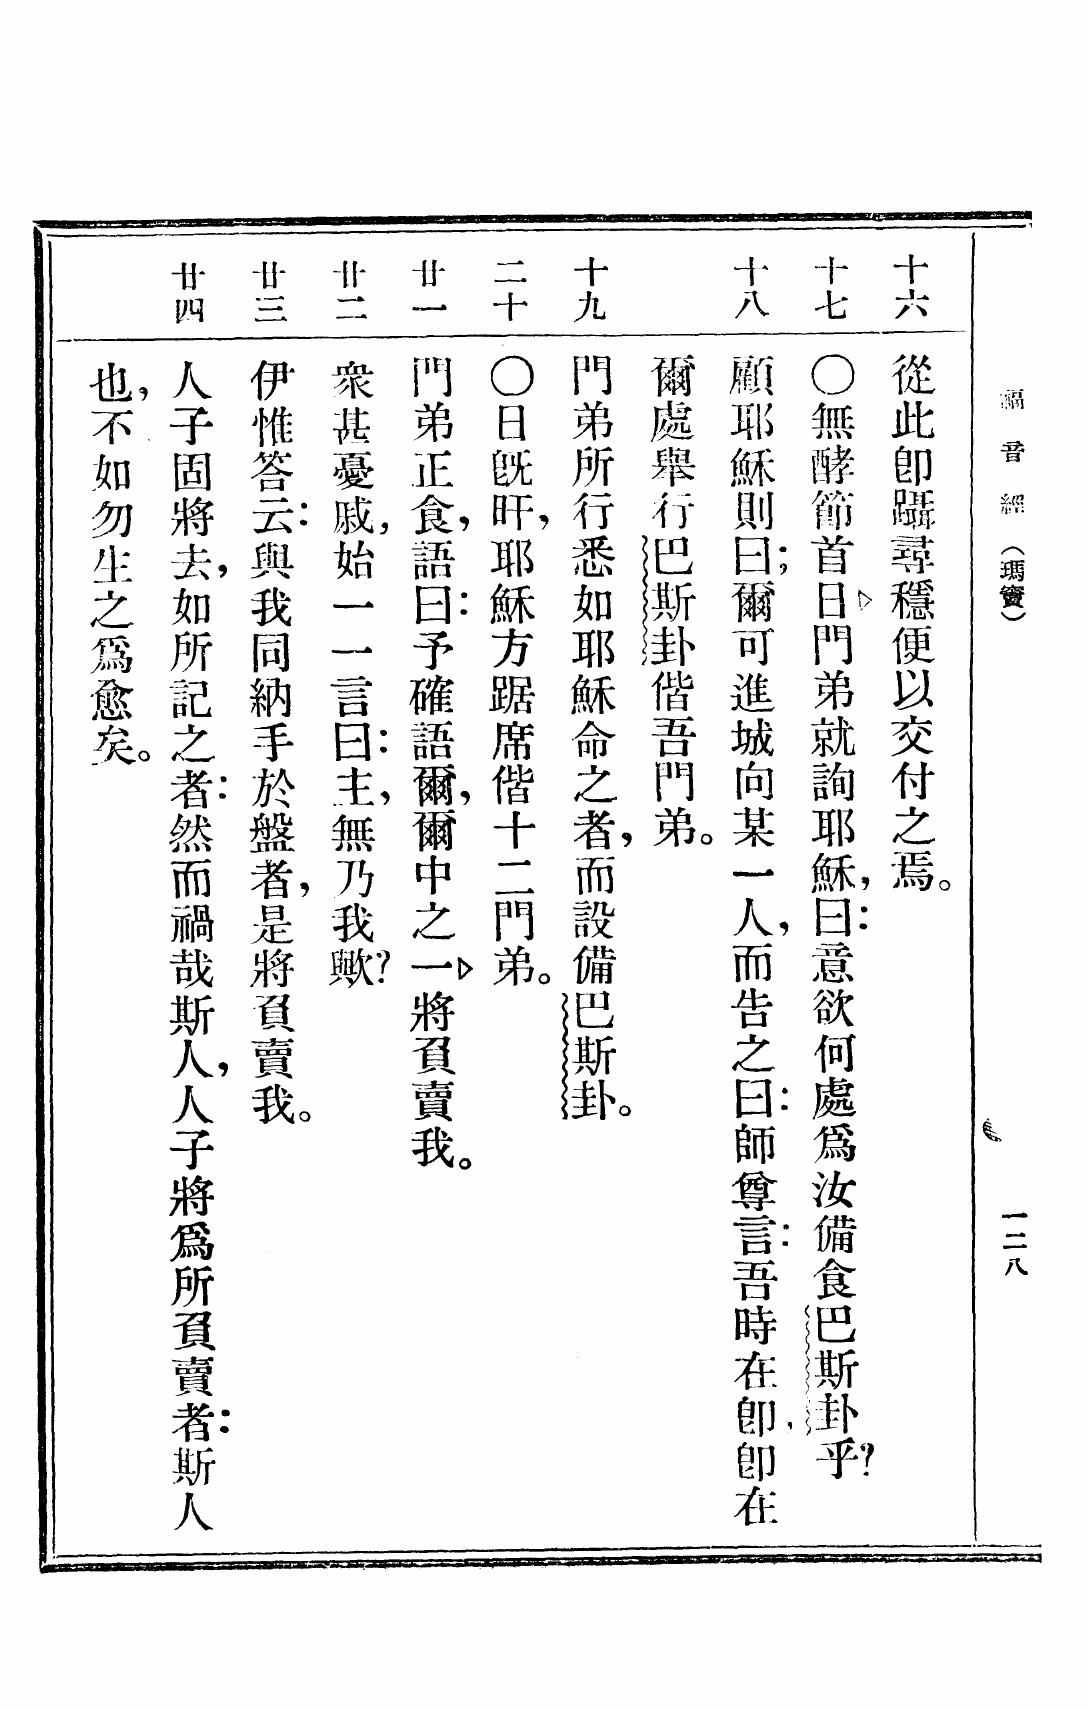 福音經 (瑪竇) 一二八
十六 從此卽躡尋穩便以交付之焉。
十七 〇無酵節首日▷門弟就詢耶穌，曰：意欲何處爲汝備食巴斯卦乎？
十八 顧耶穌則曰；爾可進城向某一人，而告之曰：師尊言：吾時在卽，卽在
爾處舉行巴斯卦偕吾門弟。
十九 門弟所行悉如耶穌命之者，而設備巴斯卦。
二十 〇日旣旰，耶穌方踞席偕十二門弟。
廿一 門弟正食，語曰：予確語爾，爾中之一▷將負賣我。
廿二 衆甚憂戚，始一一言曰：主，無乃我歟？
廿三 伊惟答云：與我同納手於盤者，是將負賣我。
廿四 人子固將去，如所記之者：然而禍哉斯人，人子將爲所負賣者：斯人
也，不如勿生之爲愈矣。